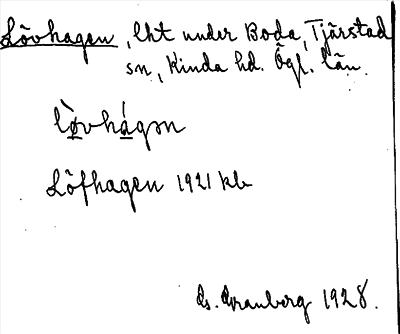 Lövhagen, lht under Boda, Tjärstad
sn, Kinda hd. Ögl. län.
lö̀vhágən
Löfhagen 1921 kb
G. Granberg 1928.